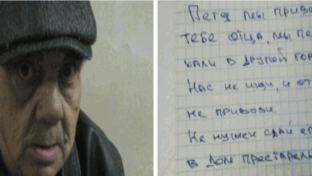 Петя мы приве
тебе отца, мы пе
хали в другой гор
Нас не ищи, и от
не привози.
Не нужен сдай ег
в дом престарел